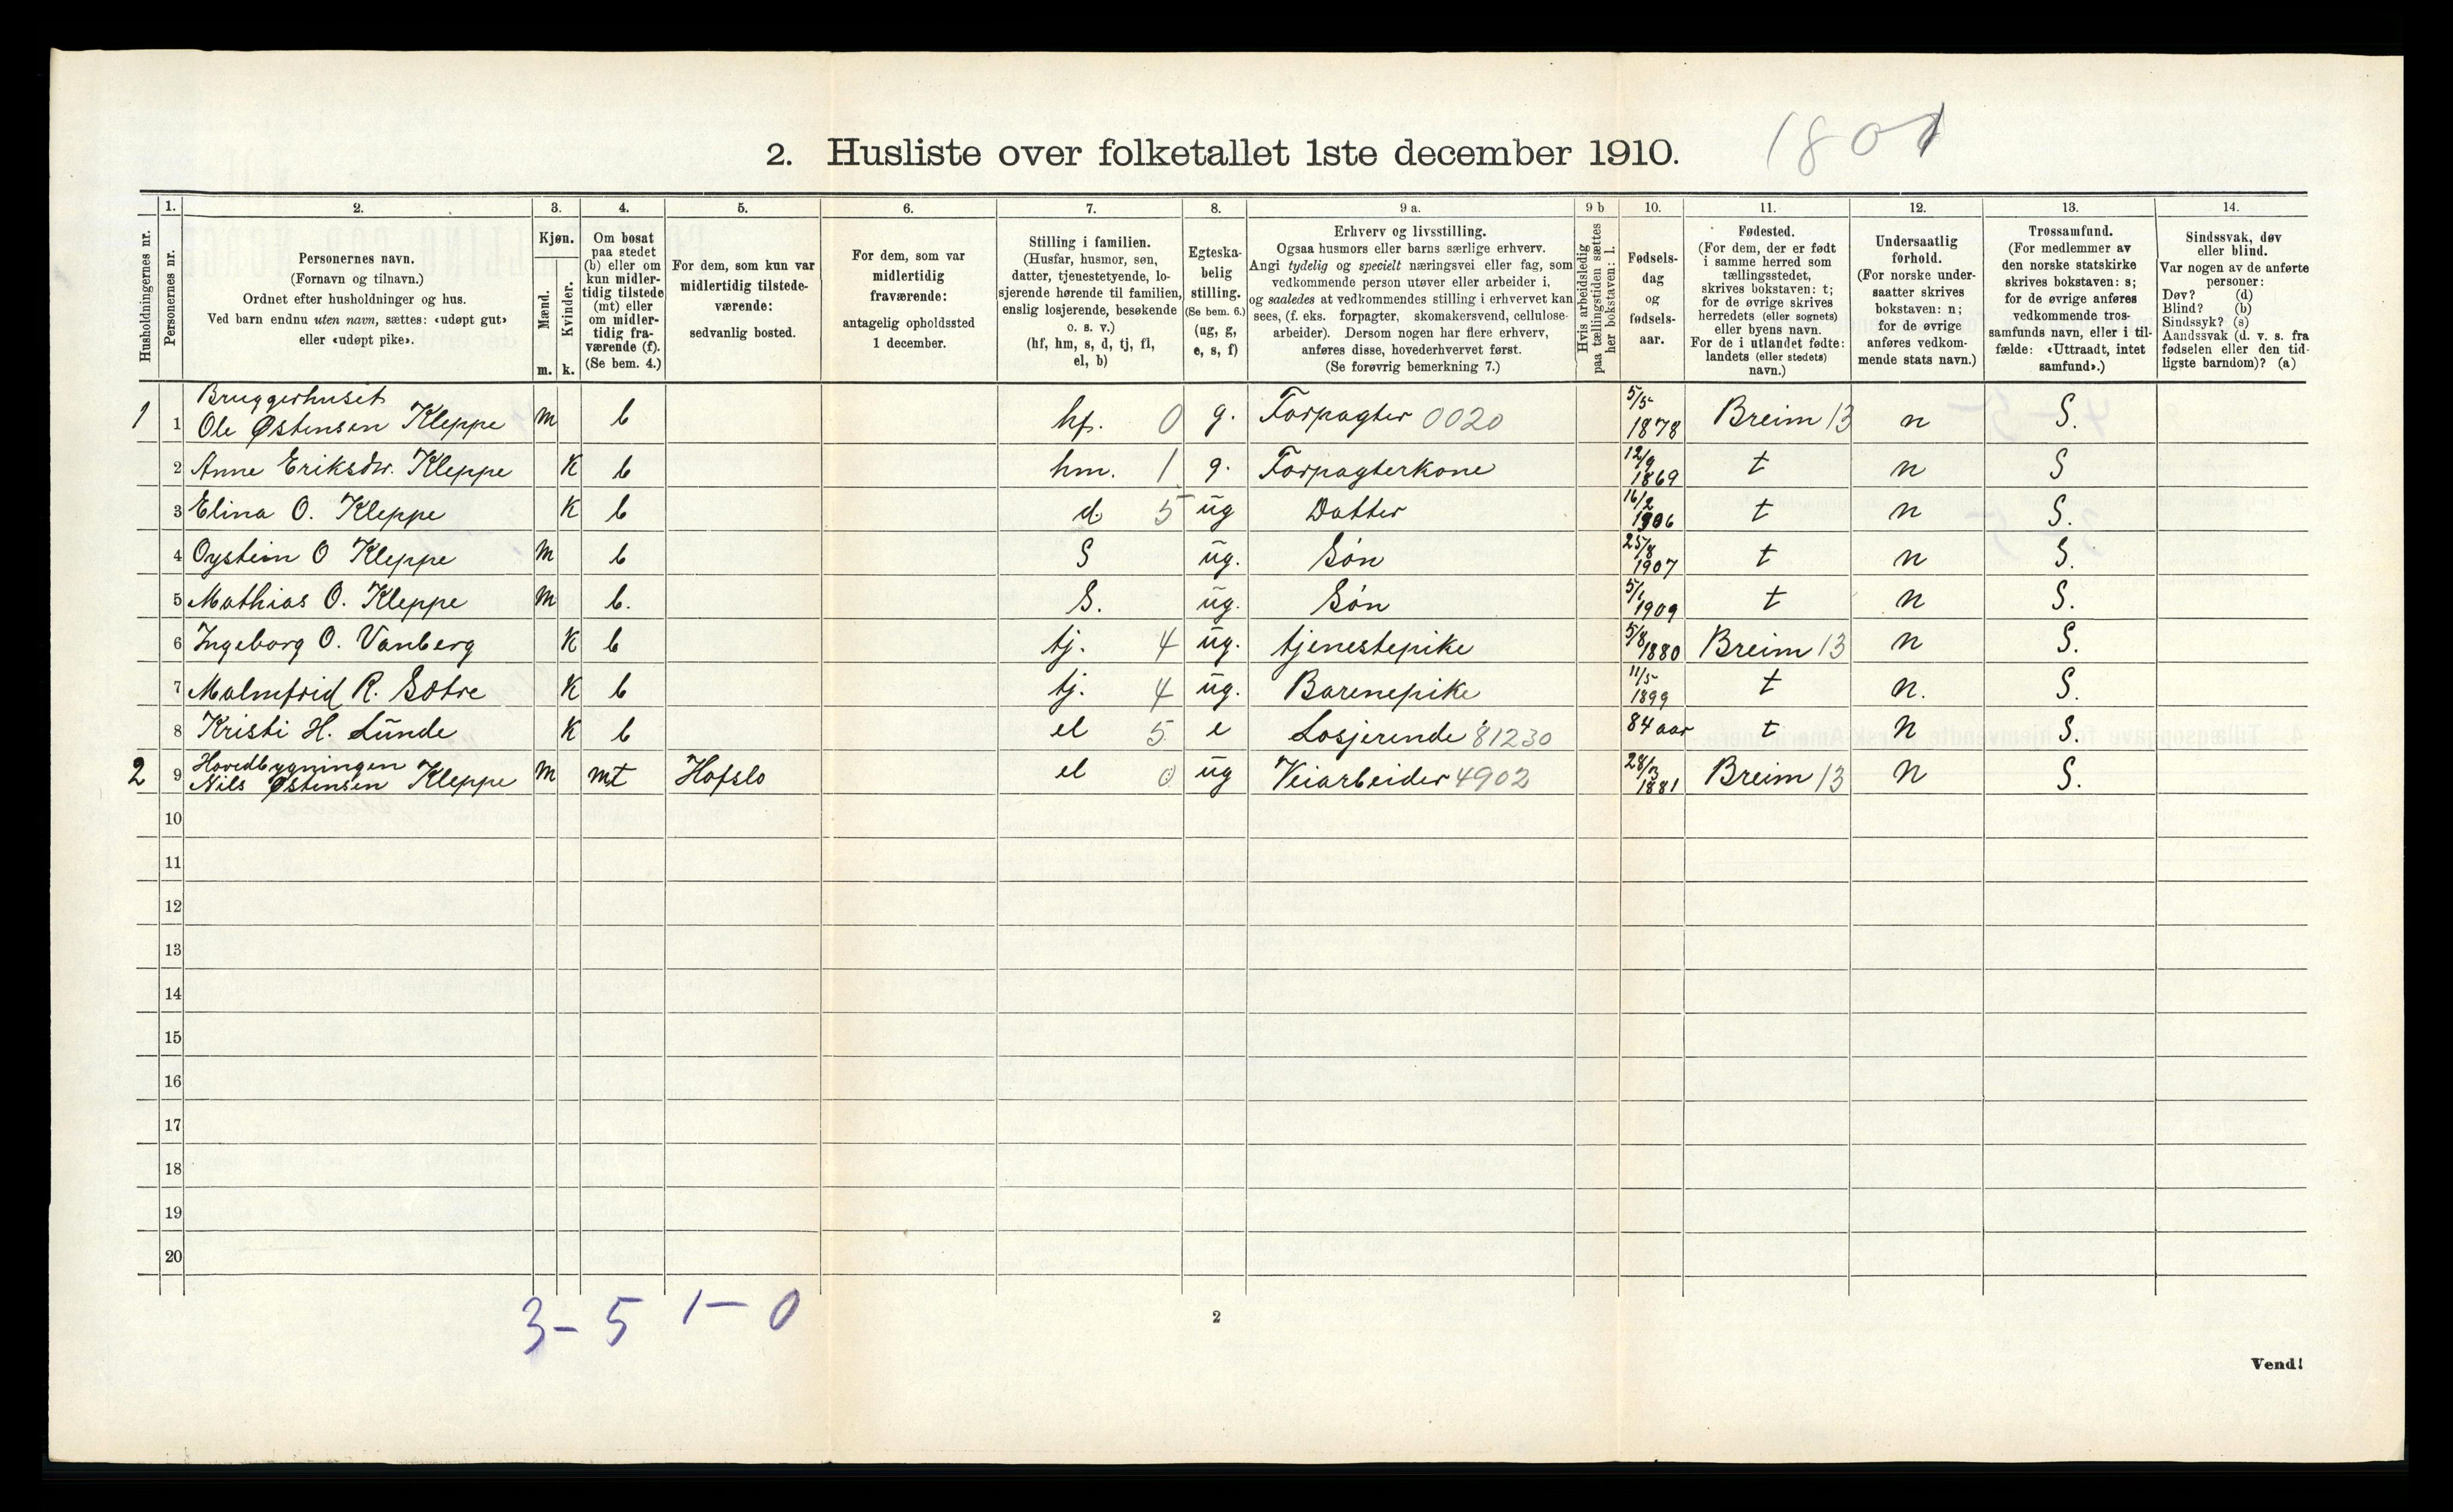 2. Husliste over folketallet 1ste december 1910.
1801
Husholdningernes nr.
1.
Personernes nr.
2.
Personernes navn.
(Fornavn og tilnavn.)
Ordnet efter husholdninger og hus.
Ved barn endnu uten navn, sættes: «udøpt gut»
eller «udøpt pike».
3.
Kjøn.
Mænd.
Kvinder.
m. k.
4.
Om bosat
paa stedet
(b) eller om
kun midler-
tidig tilstede
(mt) eller
om midler-
tidig fra-
værende (f).
(Se bem. 4.)
5.
For dem, som kun var
midlertidig tilstede-
værende:
sedvanlig bosted.
6.
For dem, som var
midlertidig
fraværende:
antagelig opholdssted
1 december.
7.
Stilling i familien.
(Husfar, husmor, søn,
datter, tjenestetyende, lo-
sjerende hørende til familien,
enslig losjerende, besøkende
o. s. v.)
(hf, hm, s, d, tj, fl,
el, b)
8.
Egteska-
belig
stilling.
(Se bem. 6.)
(ug, g,
e, s, f)
9 a.
Erhverv og livsstilling.
Ogsaa husmors eller barns særlige erhverv.
Angi tydelig og specielt næringsvei eller fag, som
vedkommende person utøver eller arbeider i,
og saaledes at vedkommendes stilling i erhvervet kan
sees, (f. eks. forpagter, skomakersvend, cellulose-
arbeider). Dersom nogen har flere erhverv,
anføres disse, hovederhvervet først.
(Se forøvrig bemerkning 7.)
9 b
Hvis arbeidsledig
paa tællingstiden sættes
her bokstaven: l.
10.
Fødsels-
dag
og
fødsels-
aar.
11.
Fødested.
(For dem, der er født
i samme herred som
tællingsstedet,
skrives bokstaven: t;
for de øvrige skrives
herredets (eller sognets)
eller byens navn.
For de i utlandet fødte:
landets (eller stedets)
navn.)
12.
Undersaatlig
forhold.
(For norske under-
saatter skrives
bokstaven: n;
for de øvrige
anføres vedkom-
mende stats navn.)
13.
Trossamfund.
(For medlemmer av
den norske statskirke
skrives bokstaven: s;
for de øvrige anføres
vedkommende tros-
samfunds navn, eller i til-
fælde: «Uttraadt, intet
samfund».)
14.
Sindssvak, døv
eller blind.
Var nogen av de anførte
personer:
Døv? (d)
Blind? (b)
Sindssyk? (s)
Aandssvak (d. v. s. fra
fødselen eller den tid-
ligste barndom)? (a)
Bryggerhuset
1 1 Ole Østensen Kleppe m b hf. 0 g. Forpagter 0020 5/5 1878 Breim 13 n S.
2 Anne Eriksdtr. Kleppe K b hm. 1 g. Forpagterkone 12/9 1869 t n S
3 Elina O. Kleppe K b d 5 ug Datter 16/2 1906 t n S.
4 Oystein O Kleppe m b S ug. Søn 25/8 1907 t n S.
5 Mathias O. Kleppe m b. S. ug. Søn 5/1 1909 t n S.
6 Ingeborg O. Vanberg K b tj. 4 ug. tjenestepike 5/8 1880 Breim 13 n S.
7 Malmfrid R. Sætre K b tj. 4 ug. Barenepike 11/5 1899 t n. S.
8 Kristi H. Lunde K b el 5 e Losjerende 81230 84 aar t n S.
Hovedbygningen
2 9 Nils Østensen Kleppe m mt Hafslo el 0 ug Veiarbeider 4902 28/3 1881 Breim 13 n S.
10
11
12
13
14
15
16
17
18
19
20
3 – 5 1 – 0
2
Vend!